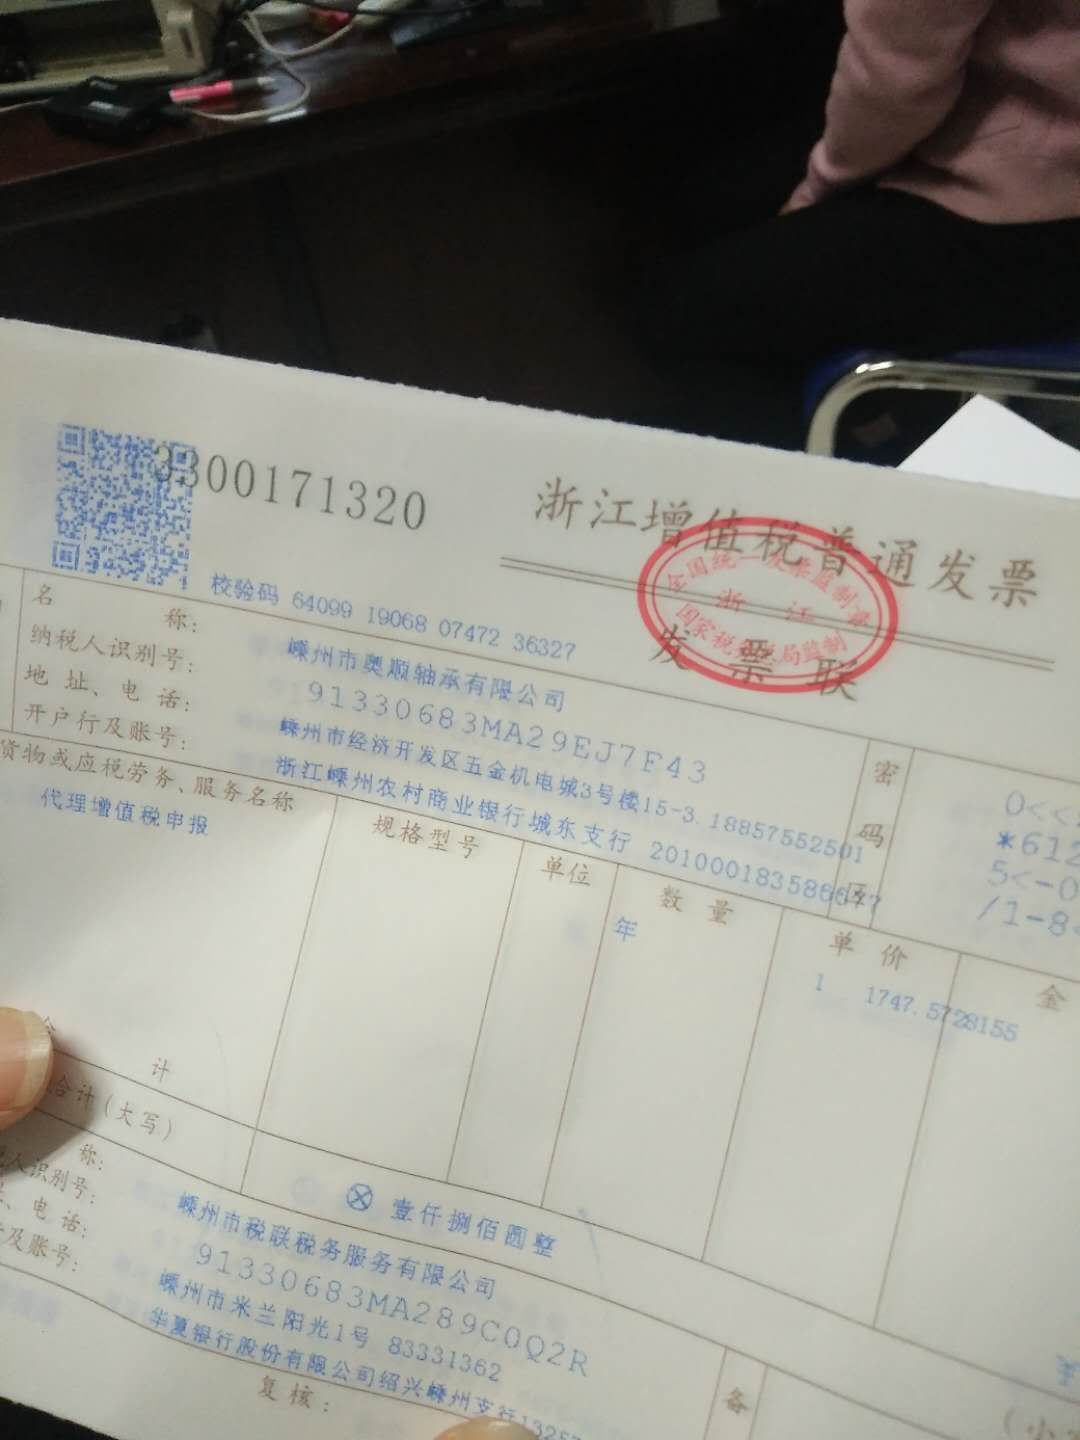 3300171320
浙江增值税普通发票
全国统一发票监制章
浙江
国家税务总局监制
发票联
校验码 64099 19068 07472 36327
名称:
嵊州市奥顺轴承有限公司
纳税人识别号:
91330683MA29EJ7E43
地址、电话:
嵊州市经济开发区五金机电城3号楼15-3.18857552501
开户行及账号:
浙江嵊州农村商业银行城东支行
密码区
0<<
*612
5<-0
/1-8
货物或应税劳务、服务名称
规格型号
单位
数量
单价
金
代理增值税申报
年
1
1747.5728155
合计
合计(大写)
壹仟捌佰圆整
称:
嵊州市税联税务服务有限公司
人识别号:
91330683MA289C0Q2R
、电话:
嵊州市米兰阳光1号 83331362
及账号:
华夏银行股份有限公司绍兴嵊州支行
备
复核:
¥